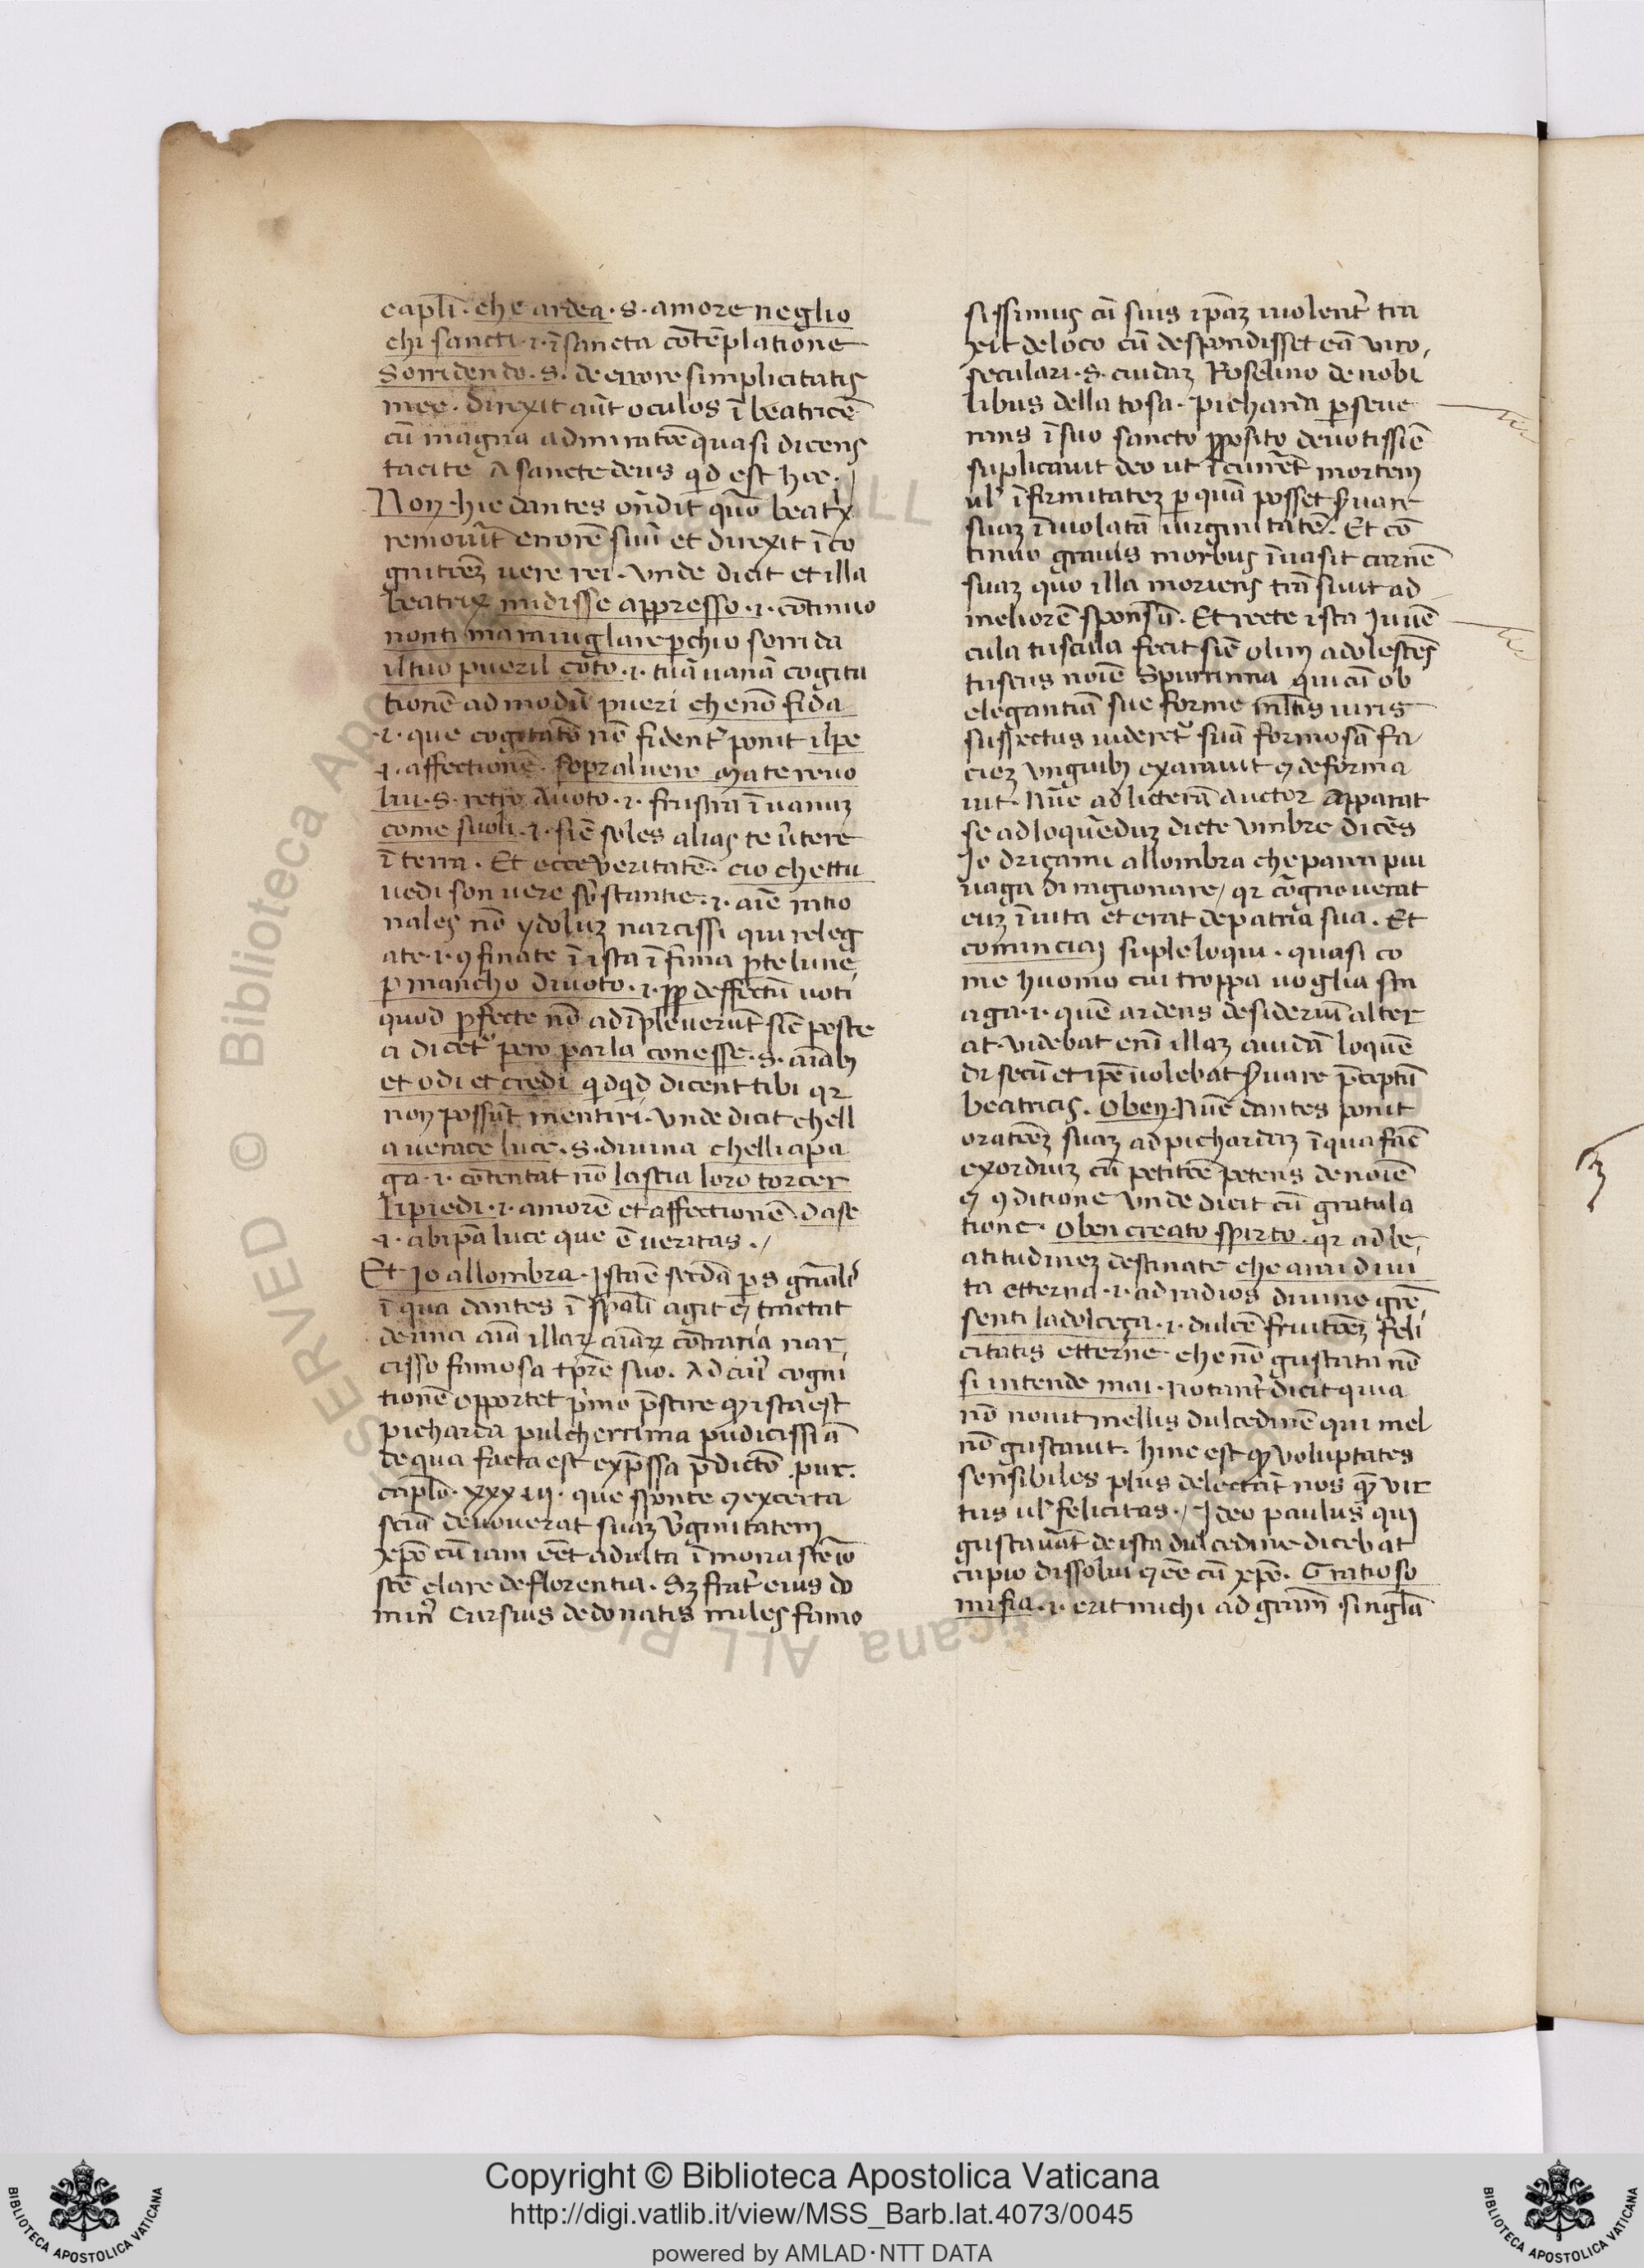 capl̄i · che ardea · s · amore neglio
chi sancti · i · ī sancta contēplatione
Sorridendo · s · de errore simplicitatis
mee · direxit aūt oculos ī beatricē
cū magna admiratōe quasi dicens
tacite A sancte deus qd est hec ·/
Non · hic dantes on̄dit quō beatrix
removit errorē suū et direxit ī co
gnitōez vere rei · vnde dicit et illa
beatrix mi disse appresso · i · cōtinuo
non ti maraviglare p̱chio sorrida
il tuo pueril coto · i · tuā vanā cogita
tionē ad modū pueri che nō fida
· i · que cogitatō nō fident̄ ponit il pe
· i · affectionē · sopral vero ma te rivo
lvi · s · retro A voto · i · frustra ī vanuz
come suoli · i · sic̄ soles alias te v̄tere
ī terra · Et ecce veritatē · cio chettu
vedi son vere sb̄stantie · i · aīe ratio
nales nō ydoluz narcissi qui releg
ate · i · ꝯfinate ī ista ī fima p̱te lune
p̱ mancho di voto · i · ꝓꝑ deffectū voti
quod p̱fecte nō adīpleverūt sic̄ poste
a dicet᷑ pero parla con esse · s · aīabꝫ
et odi et credi qdqd dicent tibi qr
non possūt mentiri · vnde dicit chell
a verace luce · s · divina chelliapa
ga · i · cōtentat nō lascia loro torcer
li piedi · i · amorē et affectionē da se
· i · ab ip̄a luce que ē veritas ·/
Et Jo allombra · Jsta ē secd̄a p̱s gn̄alr̄
ī qua dantes ī sp̄ali agit et tractat
de una aīa illaꝝ aīaꝝ cōtraria nar
cisso famosa tp̄re suo · Ad cuiꝰ cogni
tionē opportet p̄mo p̄scire qꝫ ista est
picharda pulcherrima pudicissīa
de qua facta est exp̄ssa p̄dictō pur ·
caplō · xxxiij · que sponte et ex certa
sciā devoverat suaz v̓ginitatem
xp̄o cū iam eēt adulta ī monasterio
scē clare de florentia · Sꝫ frat̄ eius do
minꝰ Cursius de donatis miles famo
sissimus cū suis ip̄az violent̄ tra
xit de loco cū despondisset eā viro
seculari · s · cuidaz Roselino de nobi
libus della tosa · picharda p̱seve
rans ī suo sancto ꝓposito devotissīe
suplicavit deo ut īcurrēt mortem
ul̄ īfirmitatez p̱ quā posset s̓vare
suaz īviolatā virginitatē · Et cō
tinuo gravis morbus īvasit carnē
suaz quo illa moriens trāsivit ad
meliorē sponsū · Et recte ista Juvē
cula tuscula fecit sic̄ olim adolescēs
tuscus noīe Spurrina qui cū ob
elegantiā sue forme ml̄tis viris
suspectus videret᷑ suā formosā fa
ciez vnguibꝫ exaravit et deforma
vit · Nūc ad licterā auctor Apparat
se ad loquēduz dicte vmbre dicēs
Jo driçami allombra che parea piu
vaga di ragionare / qr cōgnoverat
euz ī vita et erat de patria sua · Et
cominciaj suple loqui · quasi co
me huomo cui troppa voglia sm
aga · i · quē ardens desideriū alter
at · videbat enī illaz avidā loquē
di secū et ip̄e volebat s̓vare p̄ceptū
beatricis · O ben · Nūc dantes ponit
oratōez suaz ad pichardaz ī qua facit
exordiuz cū petitōe petens de noīe
et ꝯditione vnde dicit cū gratula
tione · O ben creato spirto · qr ad be
atitudinez destinate che a rai di vi
ta etterna · i · ad radios divine grē
senti la dolceça · i · dulcē fruitōez feli
citatis etterne che nō gustata nō
si intende mai · notant̄ dicit quia
nō novit mellis dulcedinē qui mel
nō gustavit · hinc est qꝫ voluptates
sensibiles plus delectāt nos qꝫ vir
tus ul̄ felicitas ·/ Jdeo paulus qui
gustav̄at de ista dulcedine dicebat
cupio dissolvi et eē cū xp̄o · Gratioso
mi fia · i · erit michi ad gratiā singlā